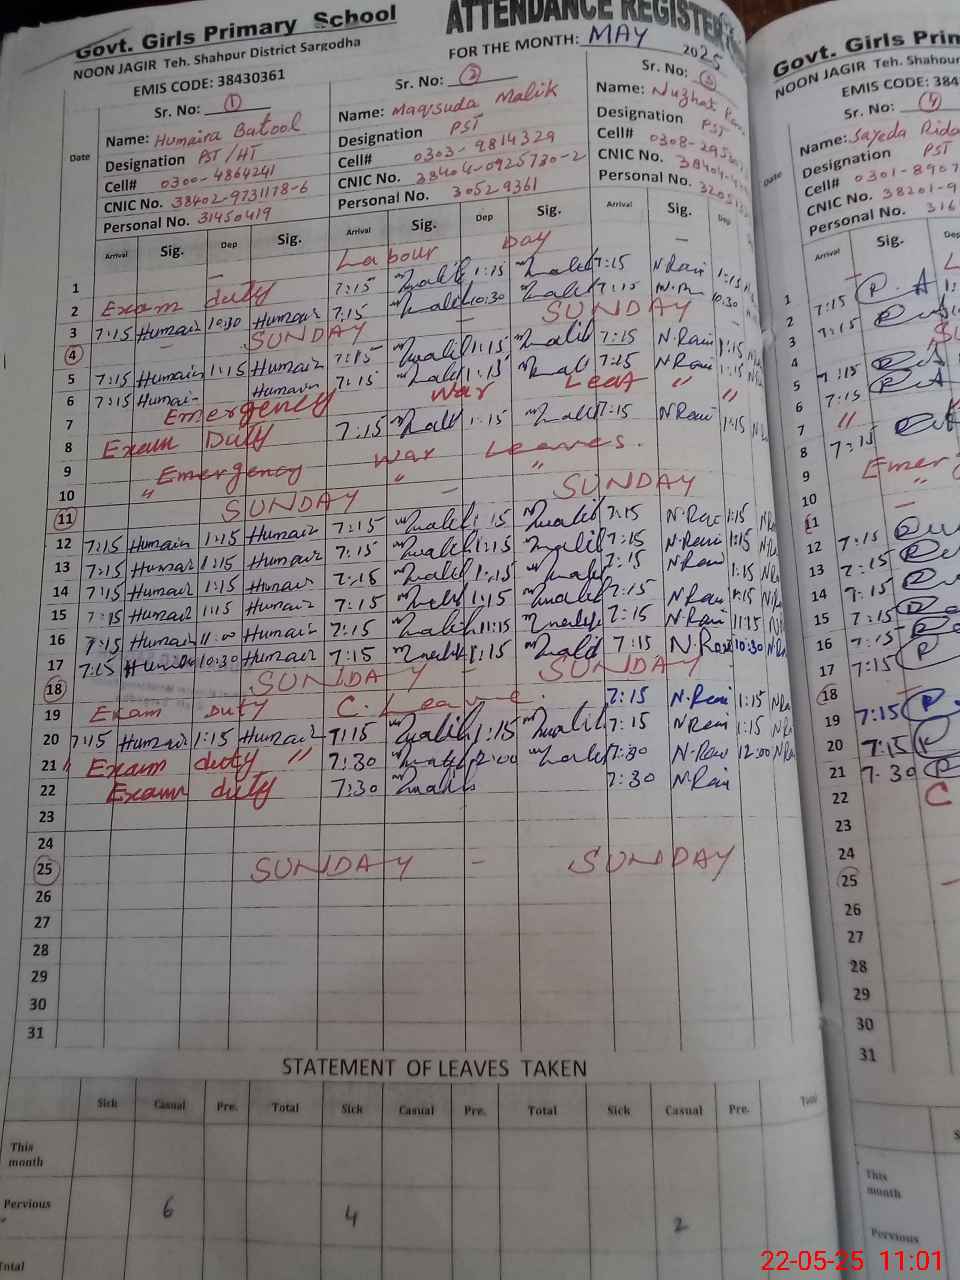 Govt. Girls Primary School
ATTENDANCE REGISTER
NOON JAGIR Teh. Shahpur District Sargodha
FOR THE MONTH: MAY 2025
EMIS CODE: 38430361
Sr. No: 1 Sr. No: 2 Sr. No: 3
Name: Humaira Batool Name: Maqsuda Malik Name: Nuzhat
Designation PST/HT Designation PST Designation PST
Cell# 0300-4864241 Cell# 0303-9814329 Cell# 0308-295
CNIC No. 38402-9731178-6 CNIC No. 38404-0925730-2 CNIC No. 38404
Personal No. 31450419 Personal No. 30529361 Personal No.
Date Arrival Sig. Dep Sig. Arrival Sig. Dep Sig. Arrival Sig. Dep
1 — Labour Day —
2 Exam duty 7:15 Malik 1:15 Malik 7:15 N Rani 1:15
3 7:15 Humair 10:30 Humair 7:15 Malik 10:30 Malik 7:15 10:30
4 — SUNDAY — SUNDAY —
5 7:15 Humair 1:15 Humair 7:15 Malik 1:15 Malik 7:15 N.Rani 1:15
6 7:15 Humair Humair 7:15 Malik 1:15 Malik 7:15 N Rani 1:15
7 Emergency War " "
8 Exam Duty 7:15 Malik 1:15 Malik 7:15 N Rani 1:15
9 Emergency War Leaves.
10 " " "
11 SUNDAY — SUNDAY
12 7:15 Humair 1:15 Humair 7:15 Malik 1:15 Malik 7:15 N.Rani 1:15
13 7:15 Humair 1:15 Humair 7:15 Malik 1:15 Malik 7:15 N.Rani 1:15
14 7:15 Humair 1:15 Humair 7:15 Malik 1:15 Malik 7:15 N Rani 1:15
15 7:15 Humair 1:15 Humair 7:15 Malik 1:15 Malik 7:15 N Rani 1:15
16 7:15 Humair 11:00 Humair 7:15 Malik 11:15 Malik 7:15 N Rani 11:15
17 7:15 Humair 10:30 Humair 7:15 Malik 1:15 Malik 7:15 N.Rani 10:30
18 SUNDAY — SUNDAY
19 Exam Duty C. Leave. 7:15 N.Rani 1:15
20 7:15 Humair 1:15 Humair 7:15 Malik 1:15 Malik 7:15 N Rani 1:15
21 Exam duty " 7:30 Malik 12:00 Malik 7:30 N.Rani 12:00
22 Exam duty 7:30 Malik 7:30 N.Rani
23
24
25 SUNDAY — SUNDAY
26
27
28
29
30
31
STATEMENT OF LEAVES TAKEN
Sick Casual Pre. Total Sick Casual Pre. Total Sick Casual Pre. Total
This month
Pervious 6 4 2
Total
Govt. Girls
NOON JAGIR Teh. Shahpur
EMIS CODE: 384
Sr. No: 4
Name: Sayeda Rida
Designation PST
Cell# 0301-8907
CNIC No. 38201-9
Personal No. 316
Date Arrival Sig.
1 —
2 7:15
3 7:15
4
5 7:15
6 7:15
7 "
8 7:15
9 Emer
10 "
11 —
12 7:15
13 7:15
14 7:15
15 7:15
16 7:15
17 7:15
18 —
19 7:15
20 7:15
21 7:30
22 C
23
24
25 —
26
27
28
29
30
31
This month
Pervious
22-05-25 11:01